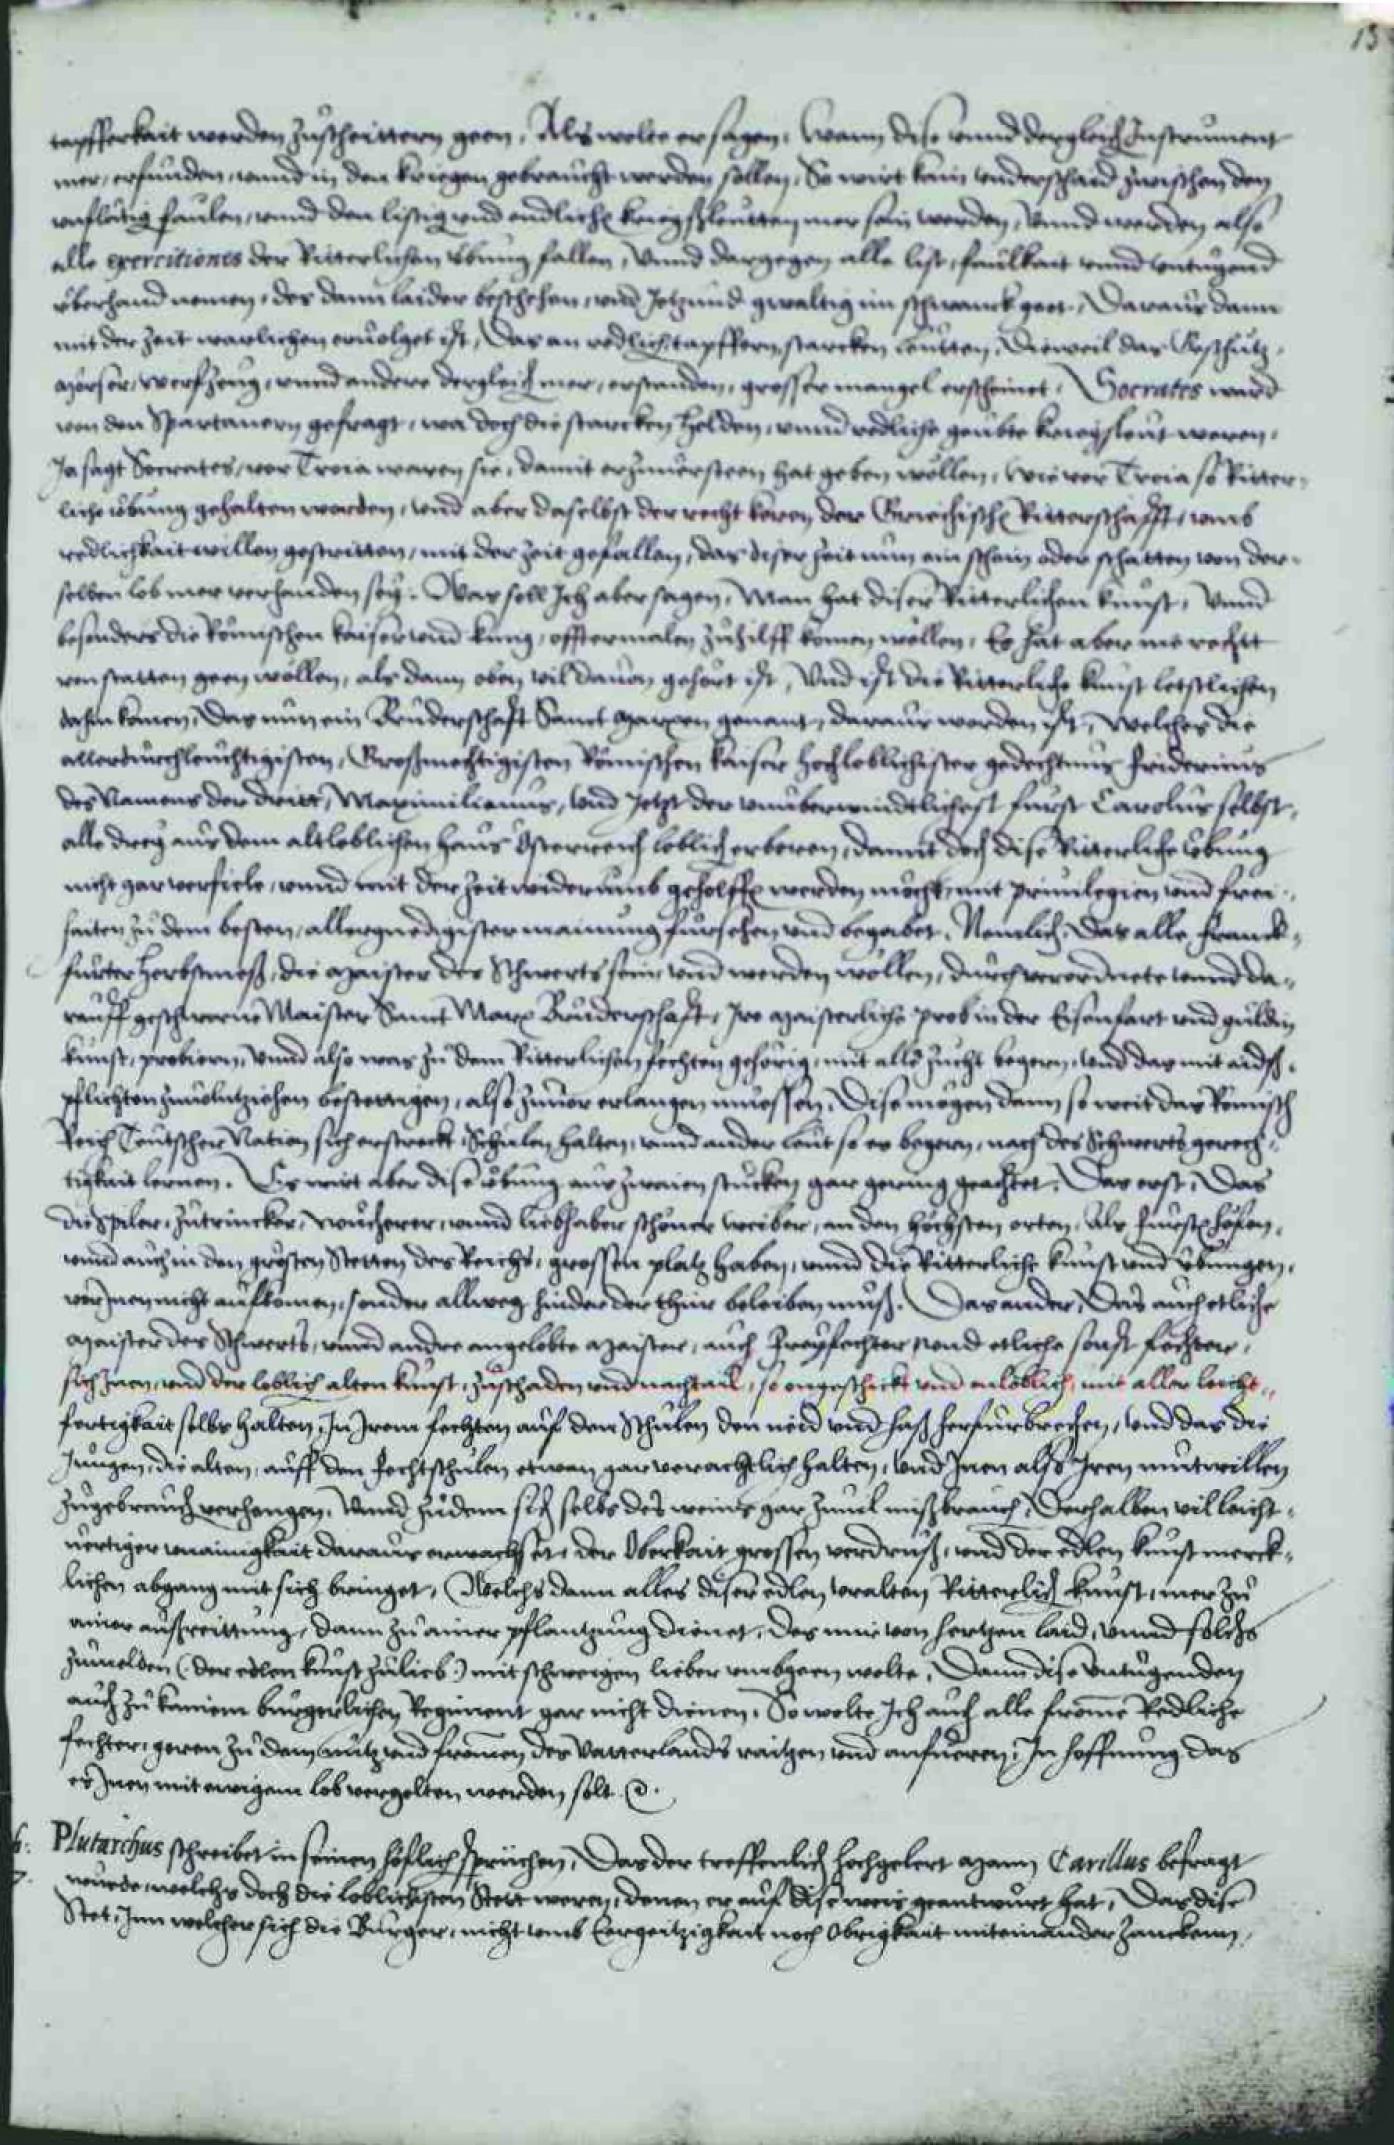 13
tapfferkait werden zuscheittern geen, Als wolte er sagen, Wann dise vnnd dergleich Instrument
mer, erfunden, vnnd in den kriegen gebraucht werden sollen, So wirt kain vnderschaid zwischen den
vnflätig faulen, vnnd den listig vnd endlichen kriegsleutten mer sein werden, Vnnd werden also
alle exercitiones der Ritterlichen übung fallen, Vnnd dargegen alle list, faulkait vnnd vntugend
überhand nemen, des dann laider beschehen, vnd Jetzund gwaltig im schwanck geet. Daraus dann
mit der zeit warlichen eruolget ist, Das an redlich, tapffern, starcken leutten, Dieweil das Geschütz,
Mörser, werfzeug, vnnd andere dergleich mer, erstanden, grosser mangel erscheinet. Socrates ward
von den Spartanern gefragt, wa doch die starcken Helden, vnnd redliche geübte kriegsleut weren,
Ja sagt Socrates, vor Troia waren sie, damit er zuuersteen hat geben wöllen, wie vor Troia so Ritter-
liche übung gehalten worden, vnd aber daselbst der recht keren der Griechisch Ritterschafft, vmb
redlichkait willen gestritten, mit der zeit gefallen, das diser zeit nun ein schein oder schatten von der-
selben lob mer verhanden sey. Was soll Ich aber sagen, Man hat diser Ritterlichen kunst, Vnnd
besonders die Römischen kaiser vnd kunig, offtermalen zuhilff komen wöllen, Es hat aber nie rechtt
von statten geen wöllen, als dann oben vil dauon gehört ist, Vnd ist die Ritterliche kunst letstlichen
dahin komen, Das nun ein Bruderschafft Sanct Marxen genant, daraus worden ist, Welches die
allerdurchleuchtigisten, Großmechtigisten Römischen kaiser hochloblichister gedechtnus Fridericus
des Namens der dritt, Maximilianus, vnd Jetzt der vnüberwindtlichest furst Carolus selbst,
alle drey aus dem altloblichen haus Österreich loblich erboren, damit doch dise Ritterliche übung
nicht gar verfiele, vnnd mit der zeit widerumb geholffen werden möcht, mit priuilegien vnd frei-
haiten zu dem besten, allergnedigister mainung fürsehen vnd begabet. Nemlich, Das alle Franck-
furter Herbstmeß, die Maister des Schwerts sein vnd werden wöllen, durch verordnete vnnd da-
rauff geschworne Maister Sanct Marx Bruderschafft, Ire Maisterliche prob in der Eisenfart vnd guldin
kunst, probiern, vnnd also was zu dem Ritterlichen fechten gehörig, mit alle zucht begern, vnd das mit aids-
pflichten zuuolntziehen bestettigen, also zuuor erlangen muessen. Dise mögen dann so weit das Römisch
Reich Teutscher Nation sich erstreckt, Schulen halten, vnnd ander leut so es begern, nach des Schwerts gerech-
tigkait lernen. Es wirt aber dise übung aus zwaien stucken gar gering geachtet, Das erst, Das
die spiler, zutrincker, wucherer, vnnd liebhaber schöner weiber, an den höchsten orten, Als Fürsten höfen,
vnnd auch in den grösten Stetten des Reichs, grossen platz haben, vnnd die Ritterliche kunst vnd übungen,
vor Inen nicht aufkomen, sonder allweg hinder der thür beleiben muß. Das ander, Das auch etliche
Maister des Schwerts, vnnd andre angelobte Maister, auch Freyfechter, vnnd etliche sonst fechter,
sich Inen, vnd der loblich alten kunst, zuschaden vnd nachtail, so ongeschickt vnd onlöblich, mit aller leicht-
fertigkait selbs halten, In Irem fechten auf den Schulen den neid vnd haß herfürbrechen, vnd das die
Jungen, die alten, auff den fechtschulen etwan gar verachtlich halten, vnd Inen als Iren mutwillen
zugebrauch verhengen, Vnnd zudem sich selbs des weins gar zuuil mißbrauch, Derhalben vil leicht-
uertiger vnainigkait daraus erwachset, der Oberkait grossen verdruß, vnd der edlen kunst merck-
lichen abgang mit sich bringet, Welchs dann alles diser edlen vralten Ritterlich kunst, mer zu
ainer ausreittung, dann zu ainer pflantzung dienet, des mir von hertzen laid, vnnd solchs
zumelden (der edlen kunst zulieb) mit schweigen lieber vmbgeen wolte, Dann dise vntugenden
auch zu kainem burgerlichen Regiment gar nicht dienen, So wolte Ich auch alle fromē Redliche
fechter, geren zu dem nutz vnd fromen des Vatterlands raitzen vnd anfueren, In hoffnung das
es Inen mit ewigem lob vergolten werden solt.
Plutarchus schreibet in seinen höflich sprüchen, Das der treffenlich hochgelert Mann Carillus befragt
wurde, welchs doch die loblichsten Stett weren, denen er auf dise weis geantwurt hat, Das dise
Stet, Inn welcher sich die Burger, nicht vmb Eergeitzigkait noch Obrigkait miteinander zanckenn,